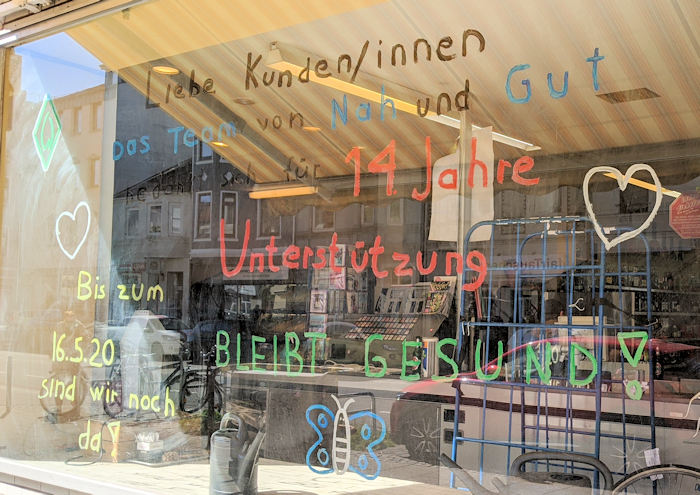 Liebe Kunden/innen
Das Team von Nah und Gut
bedankt sich für 14 Jahre
Unterstützung
Bis zum
16.5.20
sind wir noch
da!
BLEIBT GESUND!